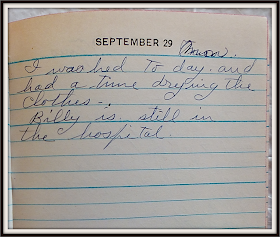 SEPTEMBER 29
I washed to day. and
had a time drying the
clothes.
Billy is still in
the hospital.